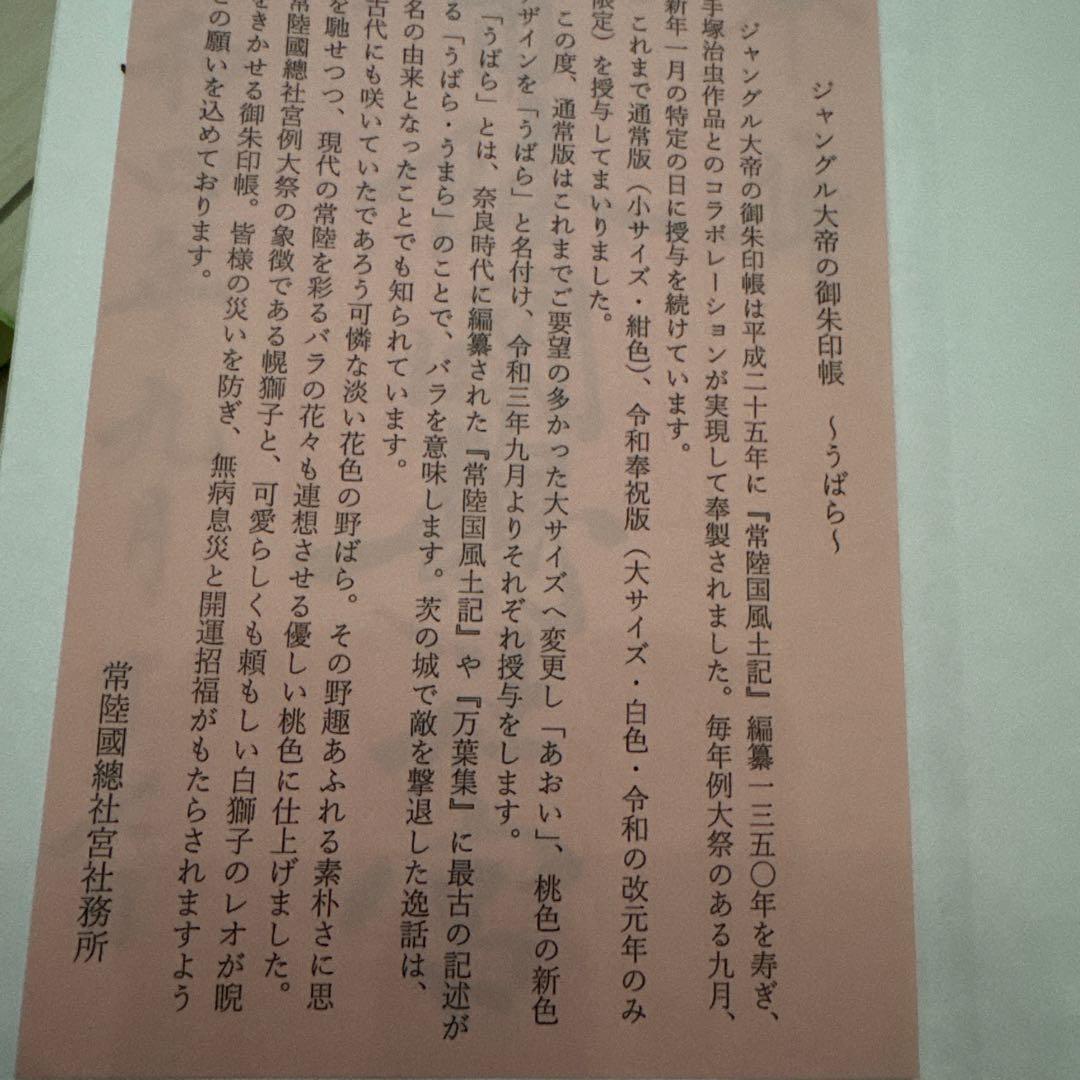 ジャングル大帝の御朱印帳　～うばら～
ジャングル大帝の御朱印帳は平成二十五年に『常陸国風土記』編纂一三五〇年を寿ぎ、
手塚治虫作品とのコラボレーションが実現して奉製されました。毎年例大祭のある九月、
新年一月の特定の日に授与を続けています。
これまで通常版（小サイズ・紺色）、令和奉祝版（大サイズ・白色・令和の改元年のみ
限定）を授与してまいりました。
この度、通常版はこれまでご要望の多かった大サイズへ変更し「あおい」、桃色の新色
デザインを「うばら」と名付け、令和三年九月よりそれぞれ授与をします。
「うばら」とは、奈良時代に編纂された『常陸国風土記』や『万葉集』に最古の記述が
る「うばら・うまら」のことで、バラを意味します。茨の城で敵を撃退した逸話は、
名の由来となったことでも知られています。
古代にも咲いていたであろう可憐な淡い花色の野ばら。その野趣あふれる素朴さに思
を馳せつつ、現代の常陸を彩るバラの花々も連想させる優しい桃色に仕上げました。
常陸國總社宮例大祭の象徴である幌獅子と、可愛らしくも頼もしい白獅子のレオが睨
をきかせる御朱印帳。皆様の災いを防ぎ、無病息災と開運招福がもたらされますよう
の願いを込めております。
常陸國總社宮社務所